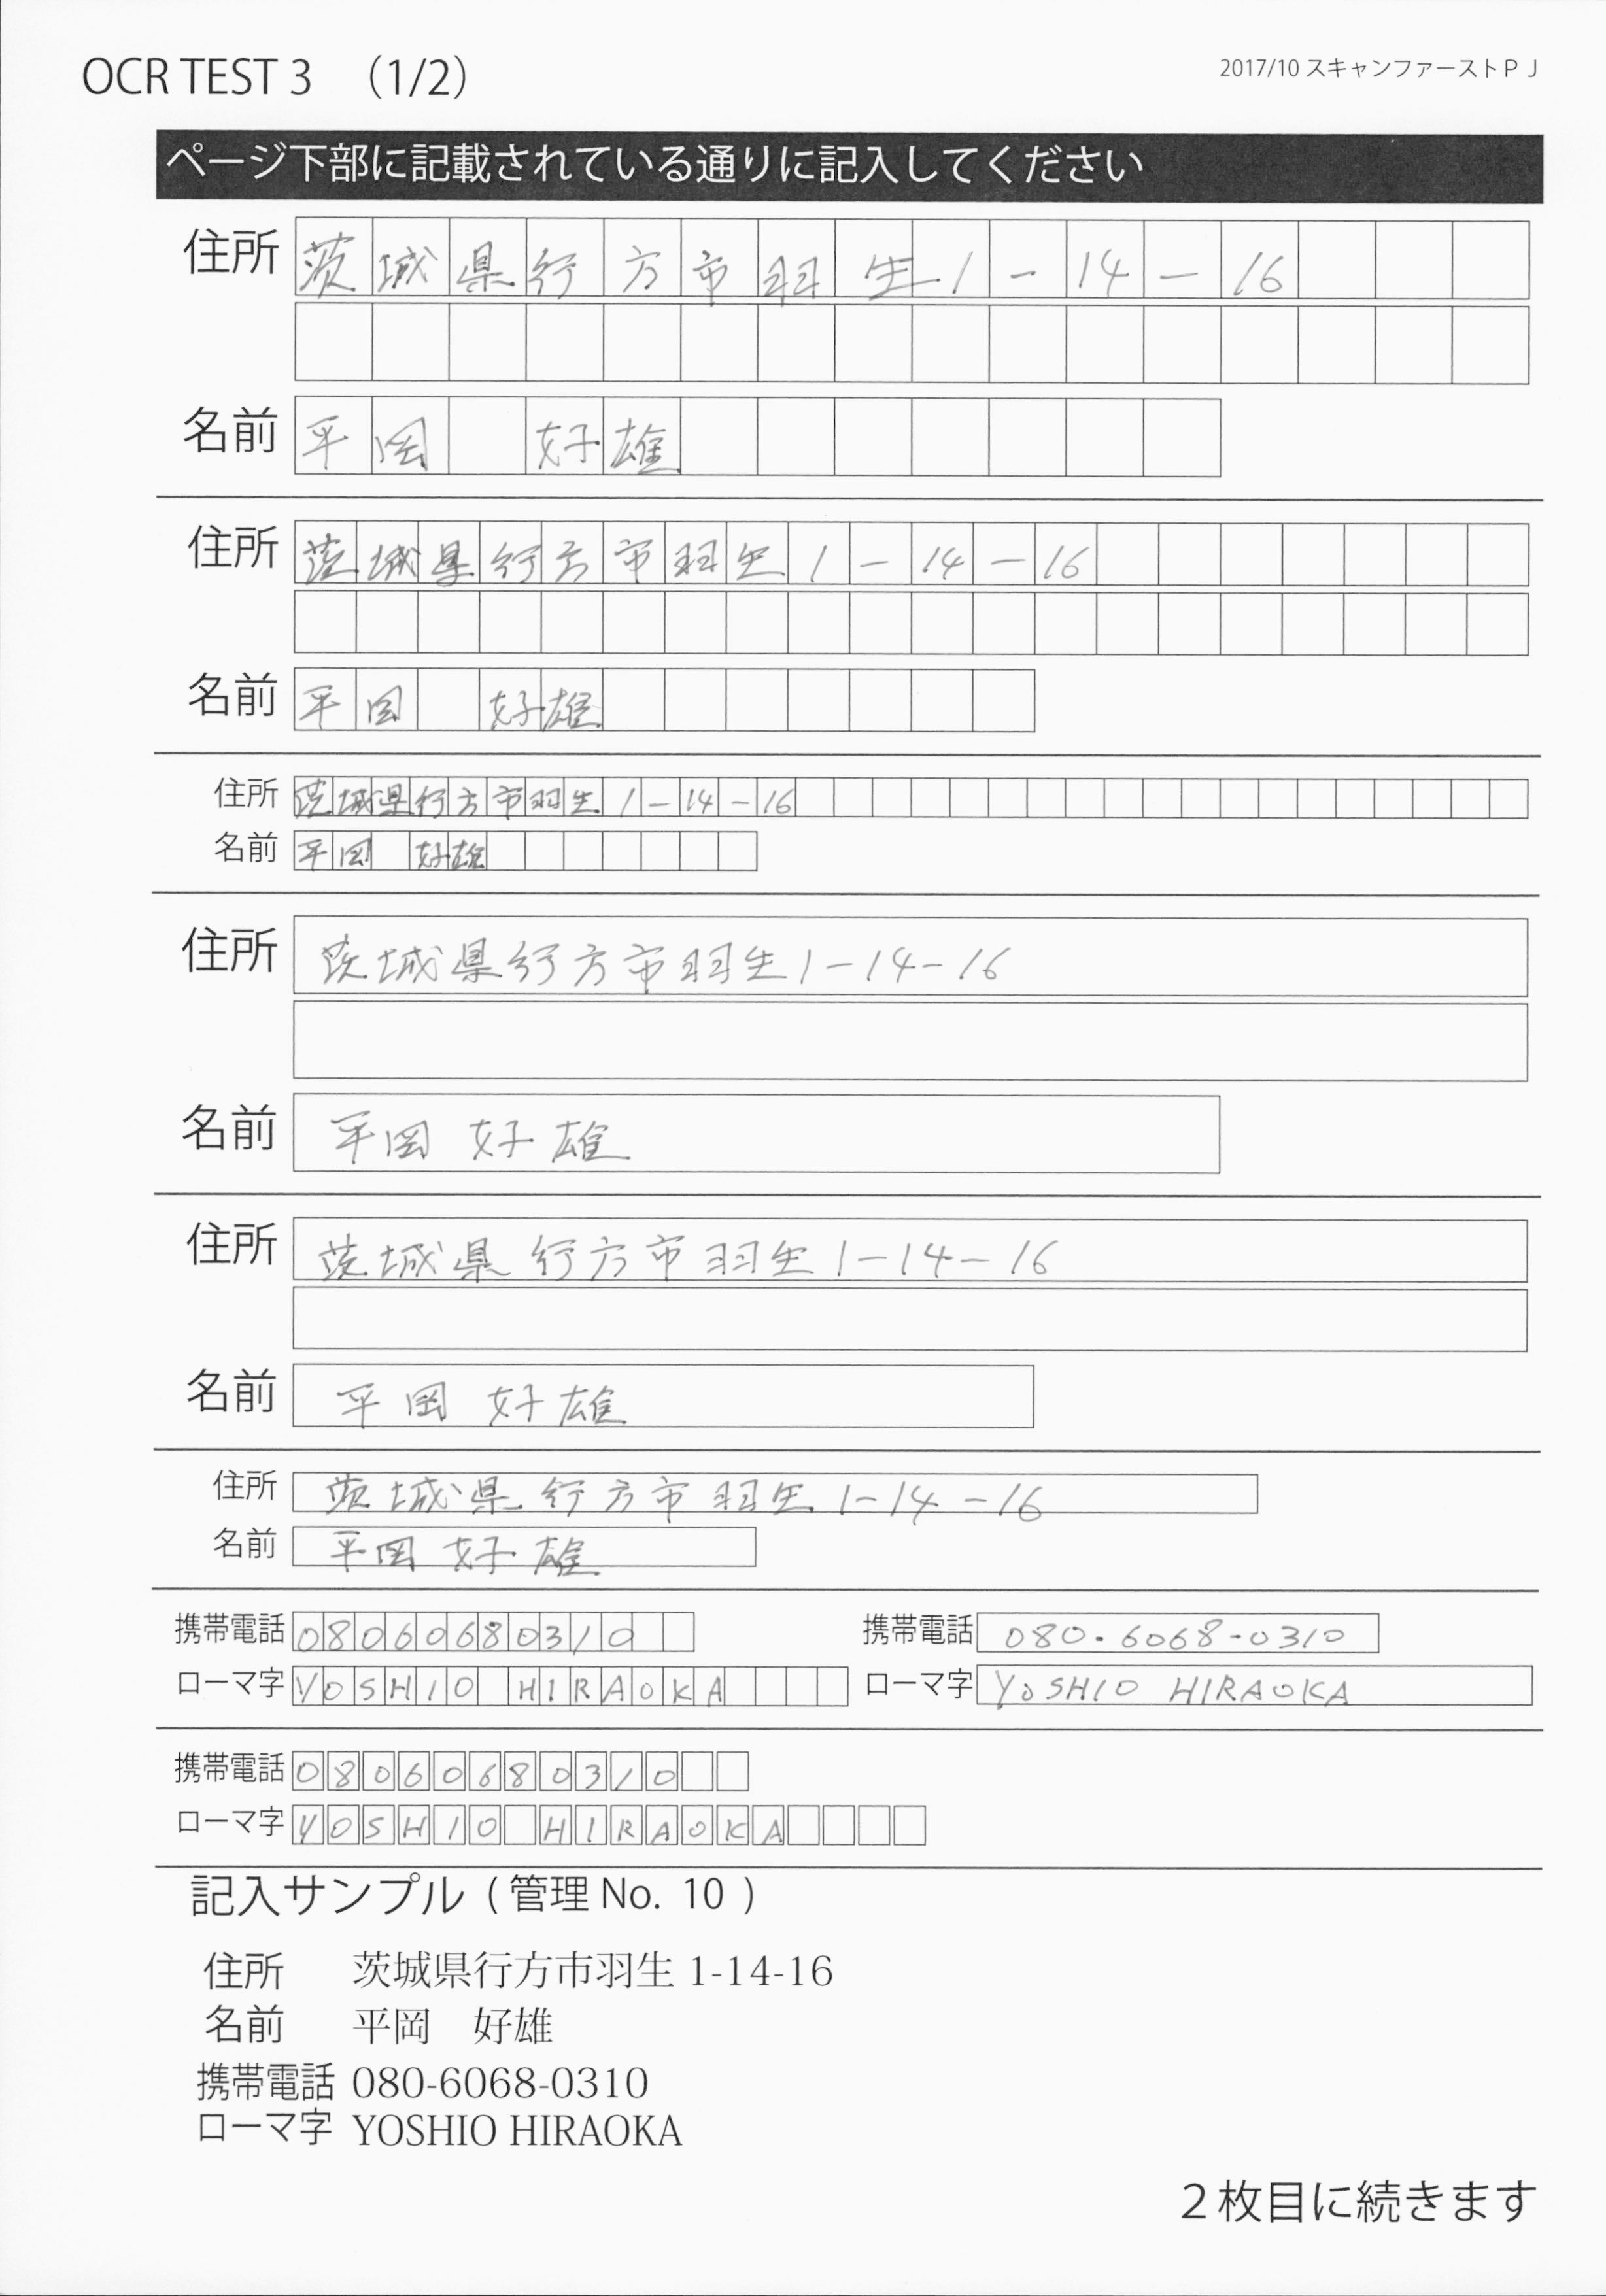 OCR TEST 3 （1/2）
2017/10 スキャンファーストＰＪ
ページ下部に記載されている通りに記入してください
住所 茨城県行方市羽生1-14-16
名前 平岡 好雄
住所 茨城県行方市羽生1-14-16
名前 平岡 好雄
住所 茨城県行方市羽生1-14-16
名前 平岡 好雄
住所 茨城県行方市羽生1-14-16
名前 平岡 好雄
住所 茨城県行方市羽生1-14-16
名前 平岡 好雄
住所 茨城県行方市羽生1-14-16
名前 平岡 好雄
携帯電話 08060680310 携帯電話 080-6068-0310
ローマ字 YOSHIO HIRAOKA ローマ字 YOSHIO HIRAOKA
携帯電話 08060680310
ローマ字 YOSHIO HIRAOKA
記入サンプル ( 管理 No. 10 )
住所 茨城県行方市羽生 1-14-16
名前 平岡　好雄
携帯電話 080-6068-0310
ローマ字 YOSHIO HIRAOKA
２枚目に続きます